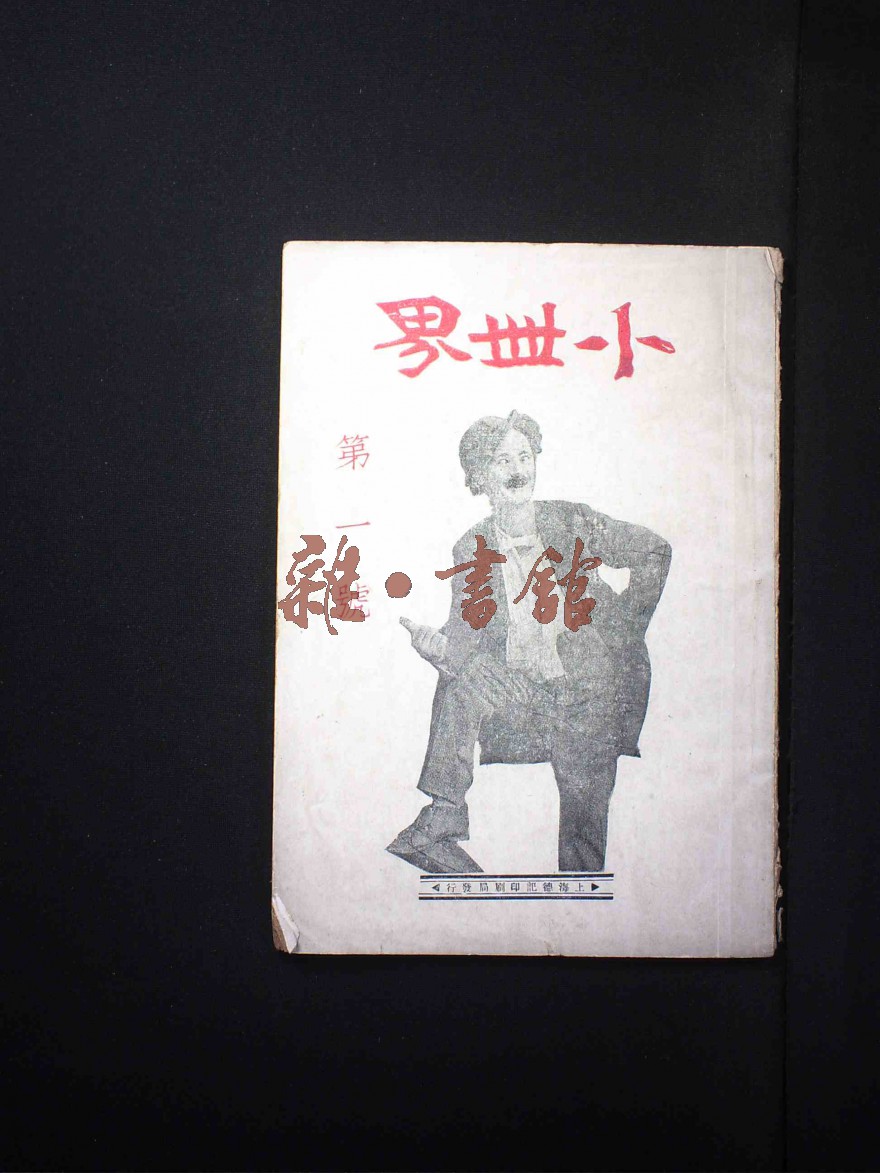 小世界
第一號
雜·書館
上海德記印刷局發行